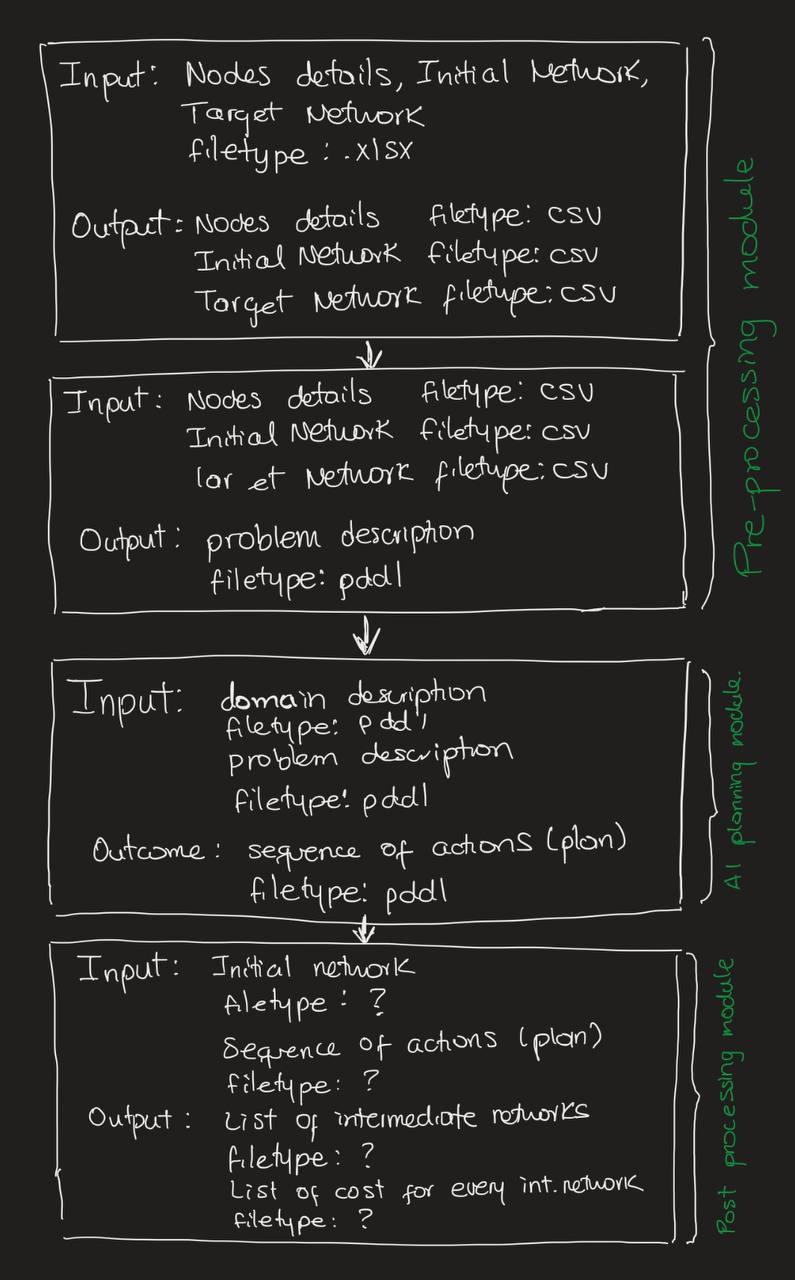 Input: Nodes details, Initial Network,
Target Network
filetype : .xlsx
Output: Nodes details filetype: CSV
Initial Network filetype: CSV
Target Network filetype: CSV
Pre-processing module
Input: Nodes details filetype: CSV
Initial Network filetype: CSV
Tar et Network filetype: CSV
Output: problem description
filetype: pddl
Input: domain description
filetype: pddl
problem description
filetype: pddl
Outcome: sequence of actions (plan)
filetype: pddl
AI planning module.
Input: Initial network
filetype : ?
Sequence of actions (plan)
filetype: ?
Output: List of intermediate networks
filetype: ?
List of cost for every int. network
filetype: ?
Post processing module